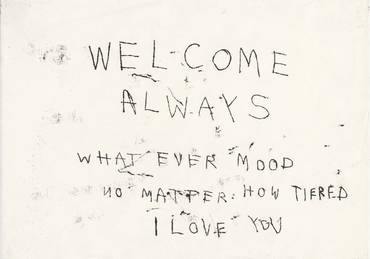 WELCOME
ALWAYS
WHAT EVER MOOD
NO MATTER. HOW TIERED
I LOVE YOU